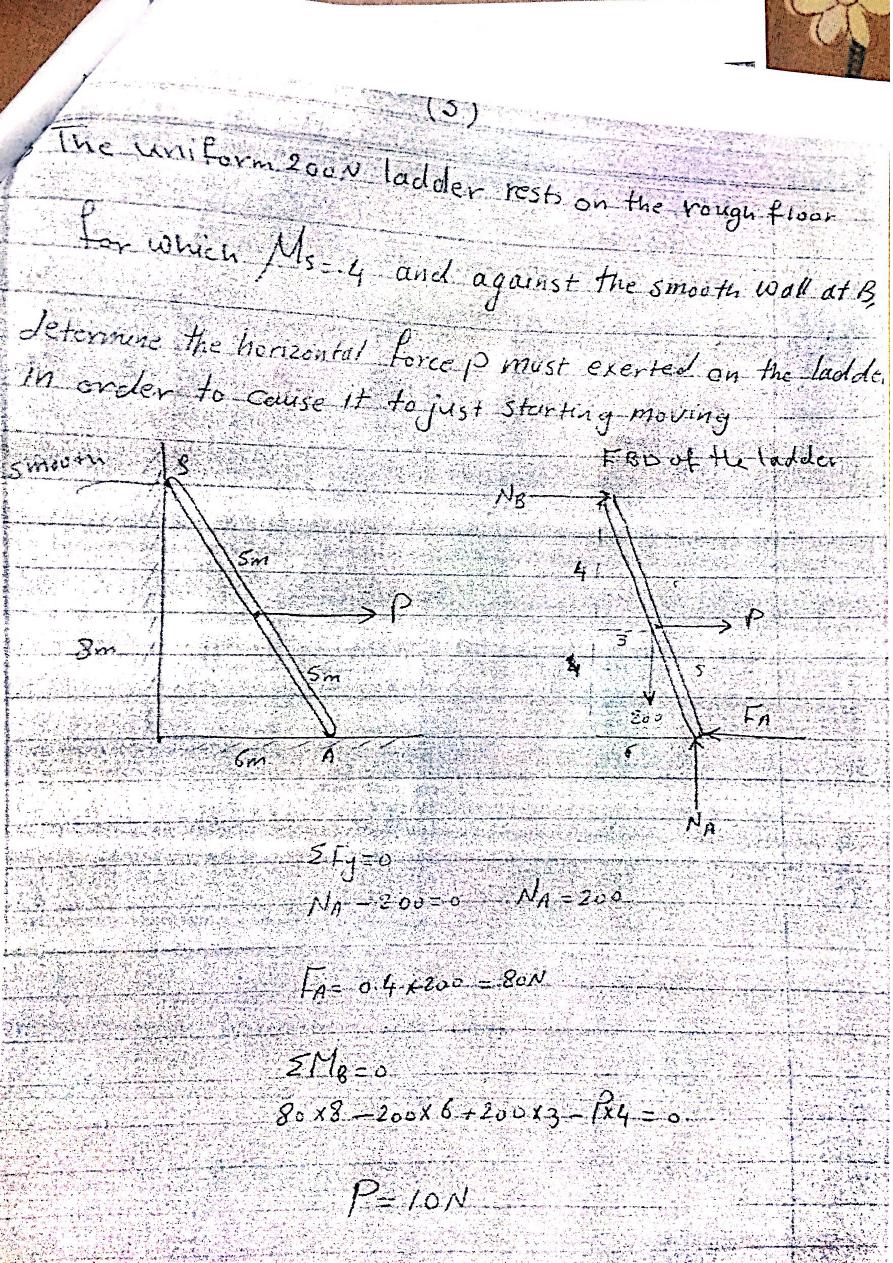 (5)
The uniform 200N ladder rests on the rough floor
for which Ms=.4 and against the smooth wall at B,
determine the horizontal force p must exerted on the ladde
in order to cause it to just starting moving
smooth
B
FBD of the ladder
NB
5m
4
P
P
3
8m
5m
4
5
200
FA
6m
A
6
NA
ΣFy=0
NA - 200=0 NA=200
FA= 0.4×200 = 80N
ΣMB=0
80×8-200×6+200×3-P×4=0
P=10N